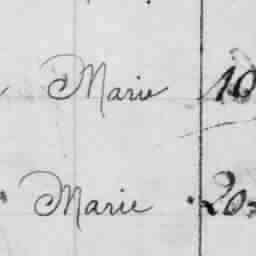 Marie 10
Marie 20